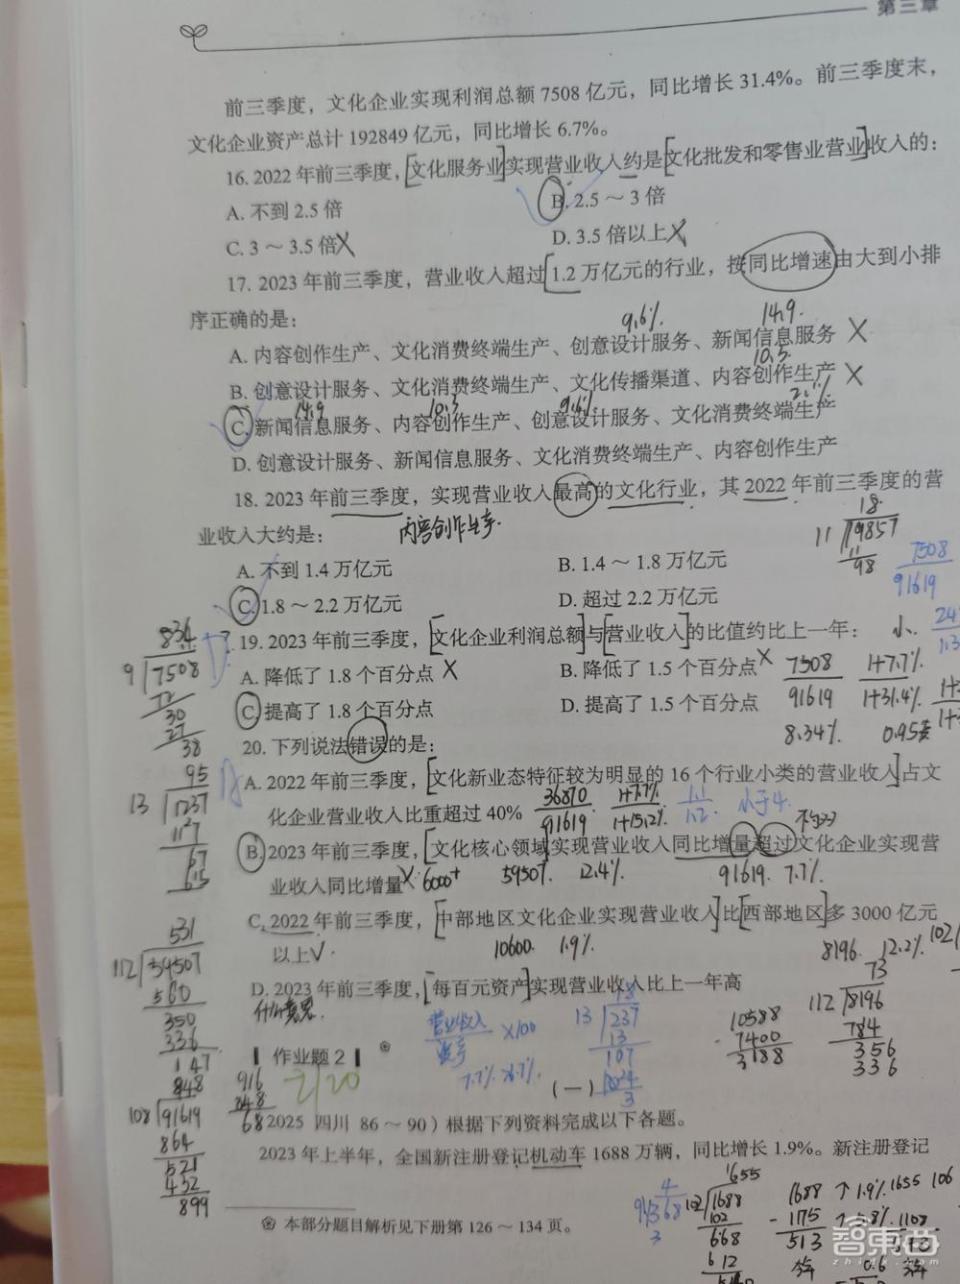 第三章
前三季度，文化企业实现利润总额 7508 亿元，同比增长 31.4%。前三季度末，
文化企业资产总计 192849 亿元，同比增长 6.7%。
16. 2022 年前三季度，[文化服务业]实现营业收入约是[文化批发和零售业营业]收入的：
A. 不到 2.5 倍
B. 2.5 ～ 3 倍
C. 3 ～ 3.5 倍 X
D. 3.5 倍以上 X
17. 2023 年前三季度，营业收入超过[1.2 万亿元的行业，按同比增速由大到小排
序正确的是：
9.6% 14.9.
A. 内容创作生产、文化消费终端生产、创意设计服务、新闻信息服务 X
10.5.
B. 创意设计服务、文化消费终端生产、文化传播渠道、内容创作生产 X
14.9 10.3 9.6%
C. 新闻信息服务、内容创作生产、创意设计服务、文化消费终端生产
D. 创意设计服务、新闻信息服务、文化消费终端生产、内容创作生产
18. 2023 年前三季度，实现营业收入最高的文化行业，其 2022 年前三季度的营
业收入大约是：
内容创作生产.
18
11 19857
11
98
7508
91619
A. 不到 1.4 万亿元
B. 1.4 ～ 1.8 万亿元
C. 1.8 ～ 2.2 万亿元
D. 超过 2.2 万亿元
19. 2023 年前三季度，[文化企业利润总额]与[营业收入]的比值约比上一年：
小.
A. 降低了 1.8 个百分点 X
B. 降低了 1.5 个百分点 X
7508 1+7.7%
91619 1+31.4%
C. 提高了 1.8 个百分点
D. 提高了 1.5 个百分点
8.34%
834
9 7508
72
30
27
38
20. 下列说法错误的是：
A. 2022 年前三季度，[文化新业态特征较为明显的 16 个行业小类的营业收入]占文
化企业营业收入比重超过 40%
36870 1+7.7% 1.1 小于4.
91619 1+15.2% 1.2
95
13 1237
117
67
65
B. 2023 年前三季度，[文化核心领域实现营业收入同比增量超过文化企业实现营
业收入同比增量 X 6000+
12.4%. 91619. 7.7%.
C. 2022 年前三季度，[中部地区文化企业实现营业收入]比[西部地区]多 3000 亿元
以上 √
10600. 1.9%.
8196. 12.2%
531
112 59507
560
350
336
147
D. 2023 年前三季度，[每百元资产]实现营业收入比上一年高
什么意思.
营业收入 X100
资产
7.7% 6.7%.
13 237
13
107
104
3
10588
7400
3188
73
112 8196
784
356
336
作业题 2
2/20
848
108 91619
864
521
432
899
916
848
68
（一）
2025 四川 86 ～ 90）根据下列资料完成以下各题。
2023 年上半年，全国新注册登记机动车 1688 万辆，同比增长 1.9%。新注册登记
1655
102 1688
102
668
612
1688 ↑ 1.9% 1655
- 1175
513
本部分题目解析见下册第 126 ～ 134 页。
智东西
zhidx.com